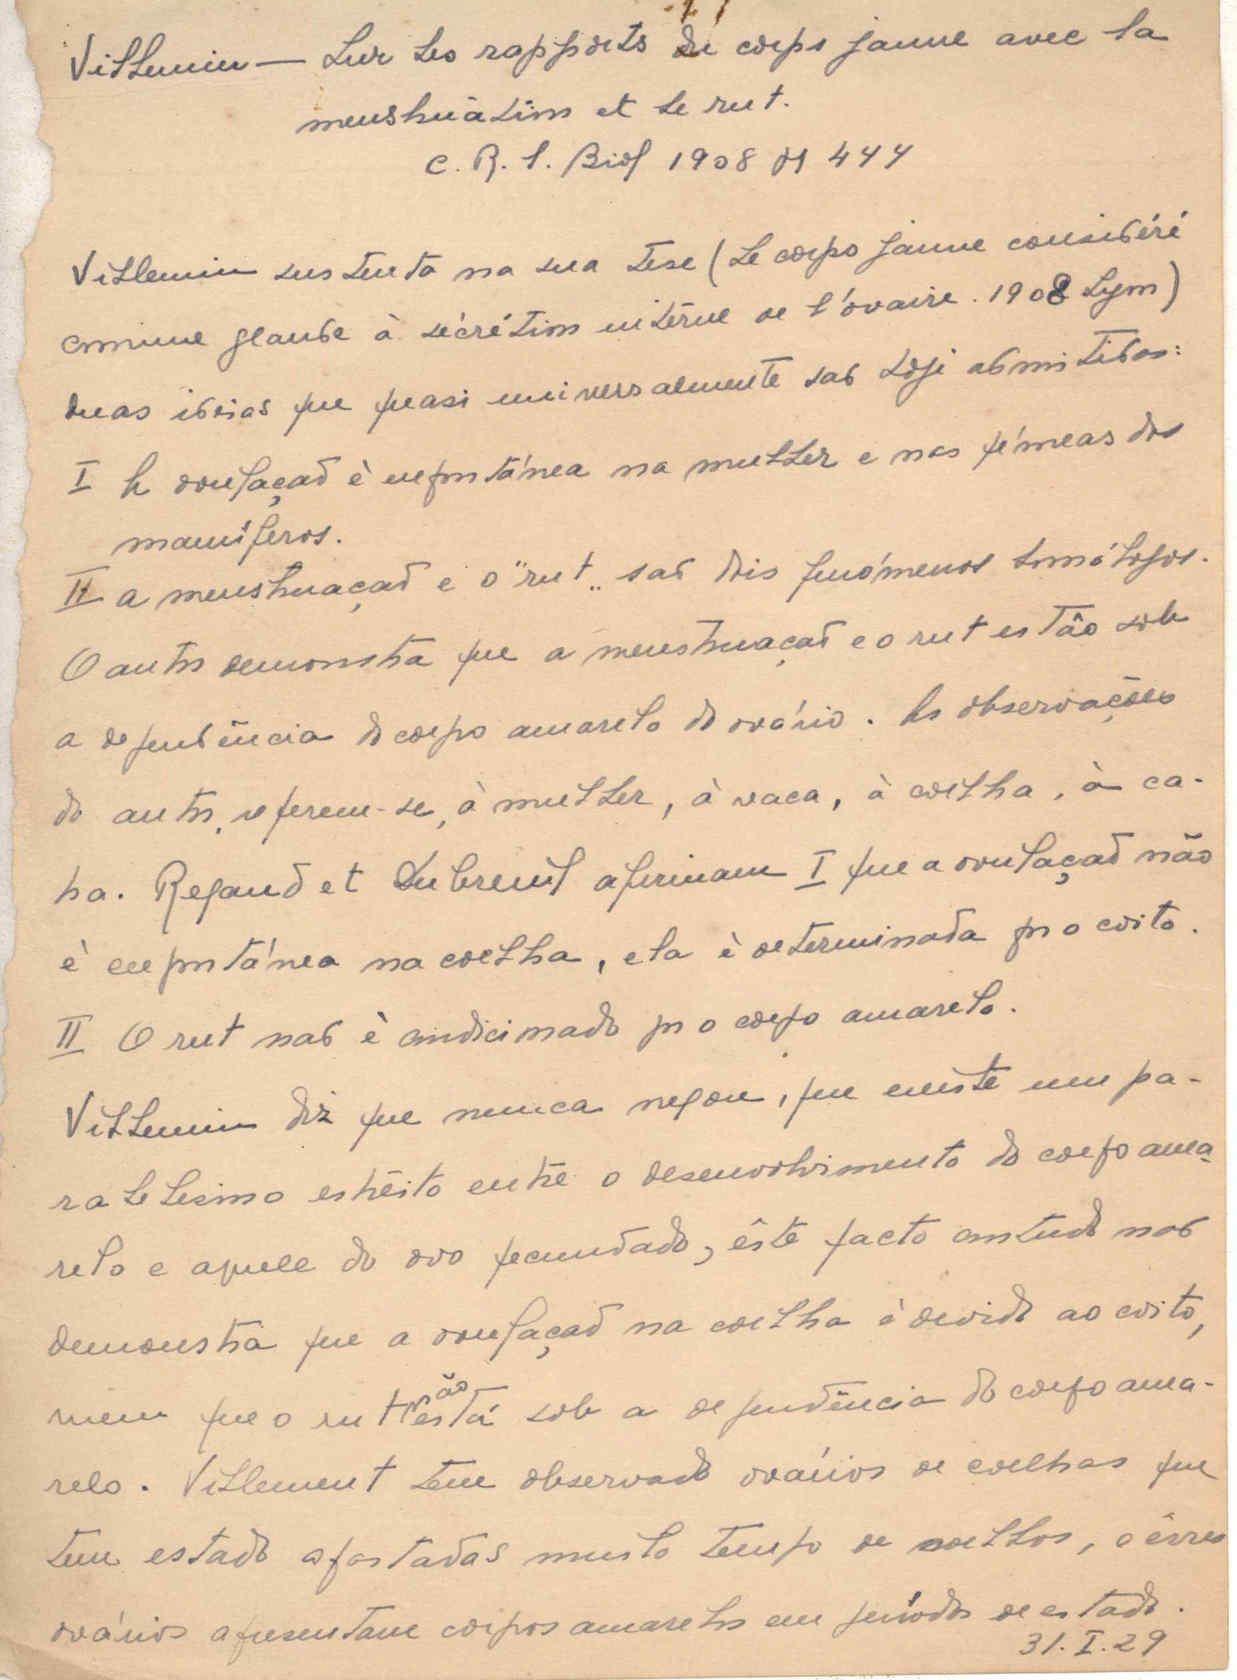 Villemin — Sur les rapports du corps jaune avec la
menstruàtion et le rut.
C. R. S. Biol 1908 pg 444
Villemin sustenta na sua tese (Le corps jaune considéré
comme glande à sécrétion intérne de l'ovaire. 1908 Lyon)
duas ideias que quasi universalmente são hoje admitidas:
I A ovulação è espontánea na mulher e nas fémeas dos
mamíferos.
II a menstruação e o "rut" são dois fenómenos homólogos.
O autor demonstra que a menstruação e o rut estão sob
a dependência do corpo amarelo do ovário. As observações
do autor, referem-se, à mulher, à vaca, à coelha, à ca-
bra. Regaud et Dubreuil afirmam I que a ovulação não
è espontánea na coelha, ela è determinada por o coito.
II O rut não è condicionado por o corpo amarelo.
Villemin diz que nunca negou, que existe um pa-
ralelismo estreito entre o desenvolvimento do corpo ama-
relo e aquele do ovo fecundado, êste facto contudo não
demonstra que a ovulação na coelha è devido ao coito,
nem que o rut não está sob a dependência do corpo ama-
relo. Villement tem observado ovários de coelhas que
tem estado afastadas muito tempo de coelhos, e êsses
ovários apresentam corpos amarelos em período de estado.
31.I.29